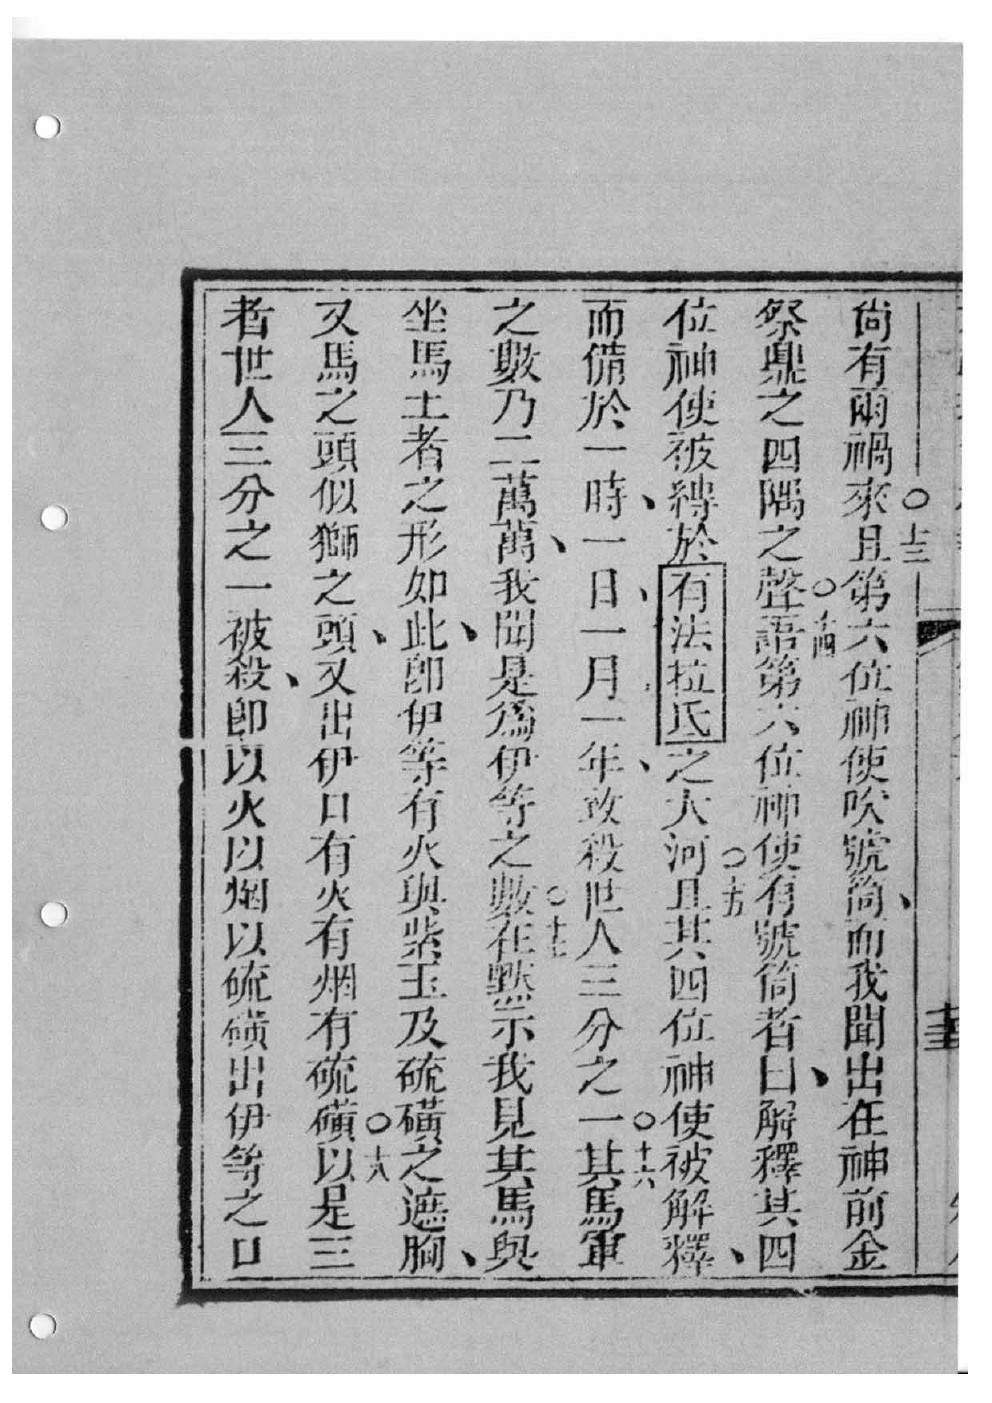 尙有兩禍來且○十三第六位神使吹號筒、而我聞出在神前金
祭鼎之四隅之聲○十四語第六位神使有號筒者曰、解釋其四
位神使被縛於有法拉氐之大河○十五且其四位神使被解釋、
而備於一時、一日、一月、一年、致殺世人三分之一○十六其馬軍
之數乃二萬萬、我聞是爲伊等之數○十七在默示我見其馬與
坐馬士者之形如此、卽伊等有火與紫玉及硫磺之遮胸、
又馬之頭似獅之頭、又出伊口有火有烟有硫磺○十八以是三
者世人三分之一被殺、卽以火以烟以硫磺出伊等之口